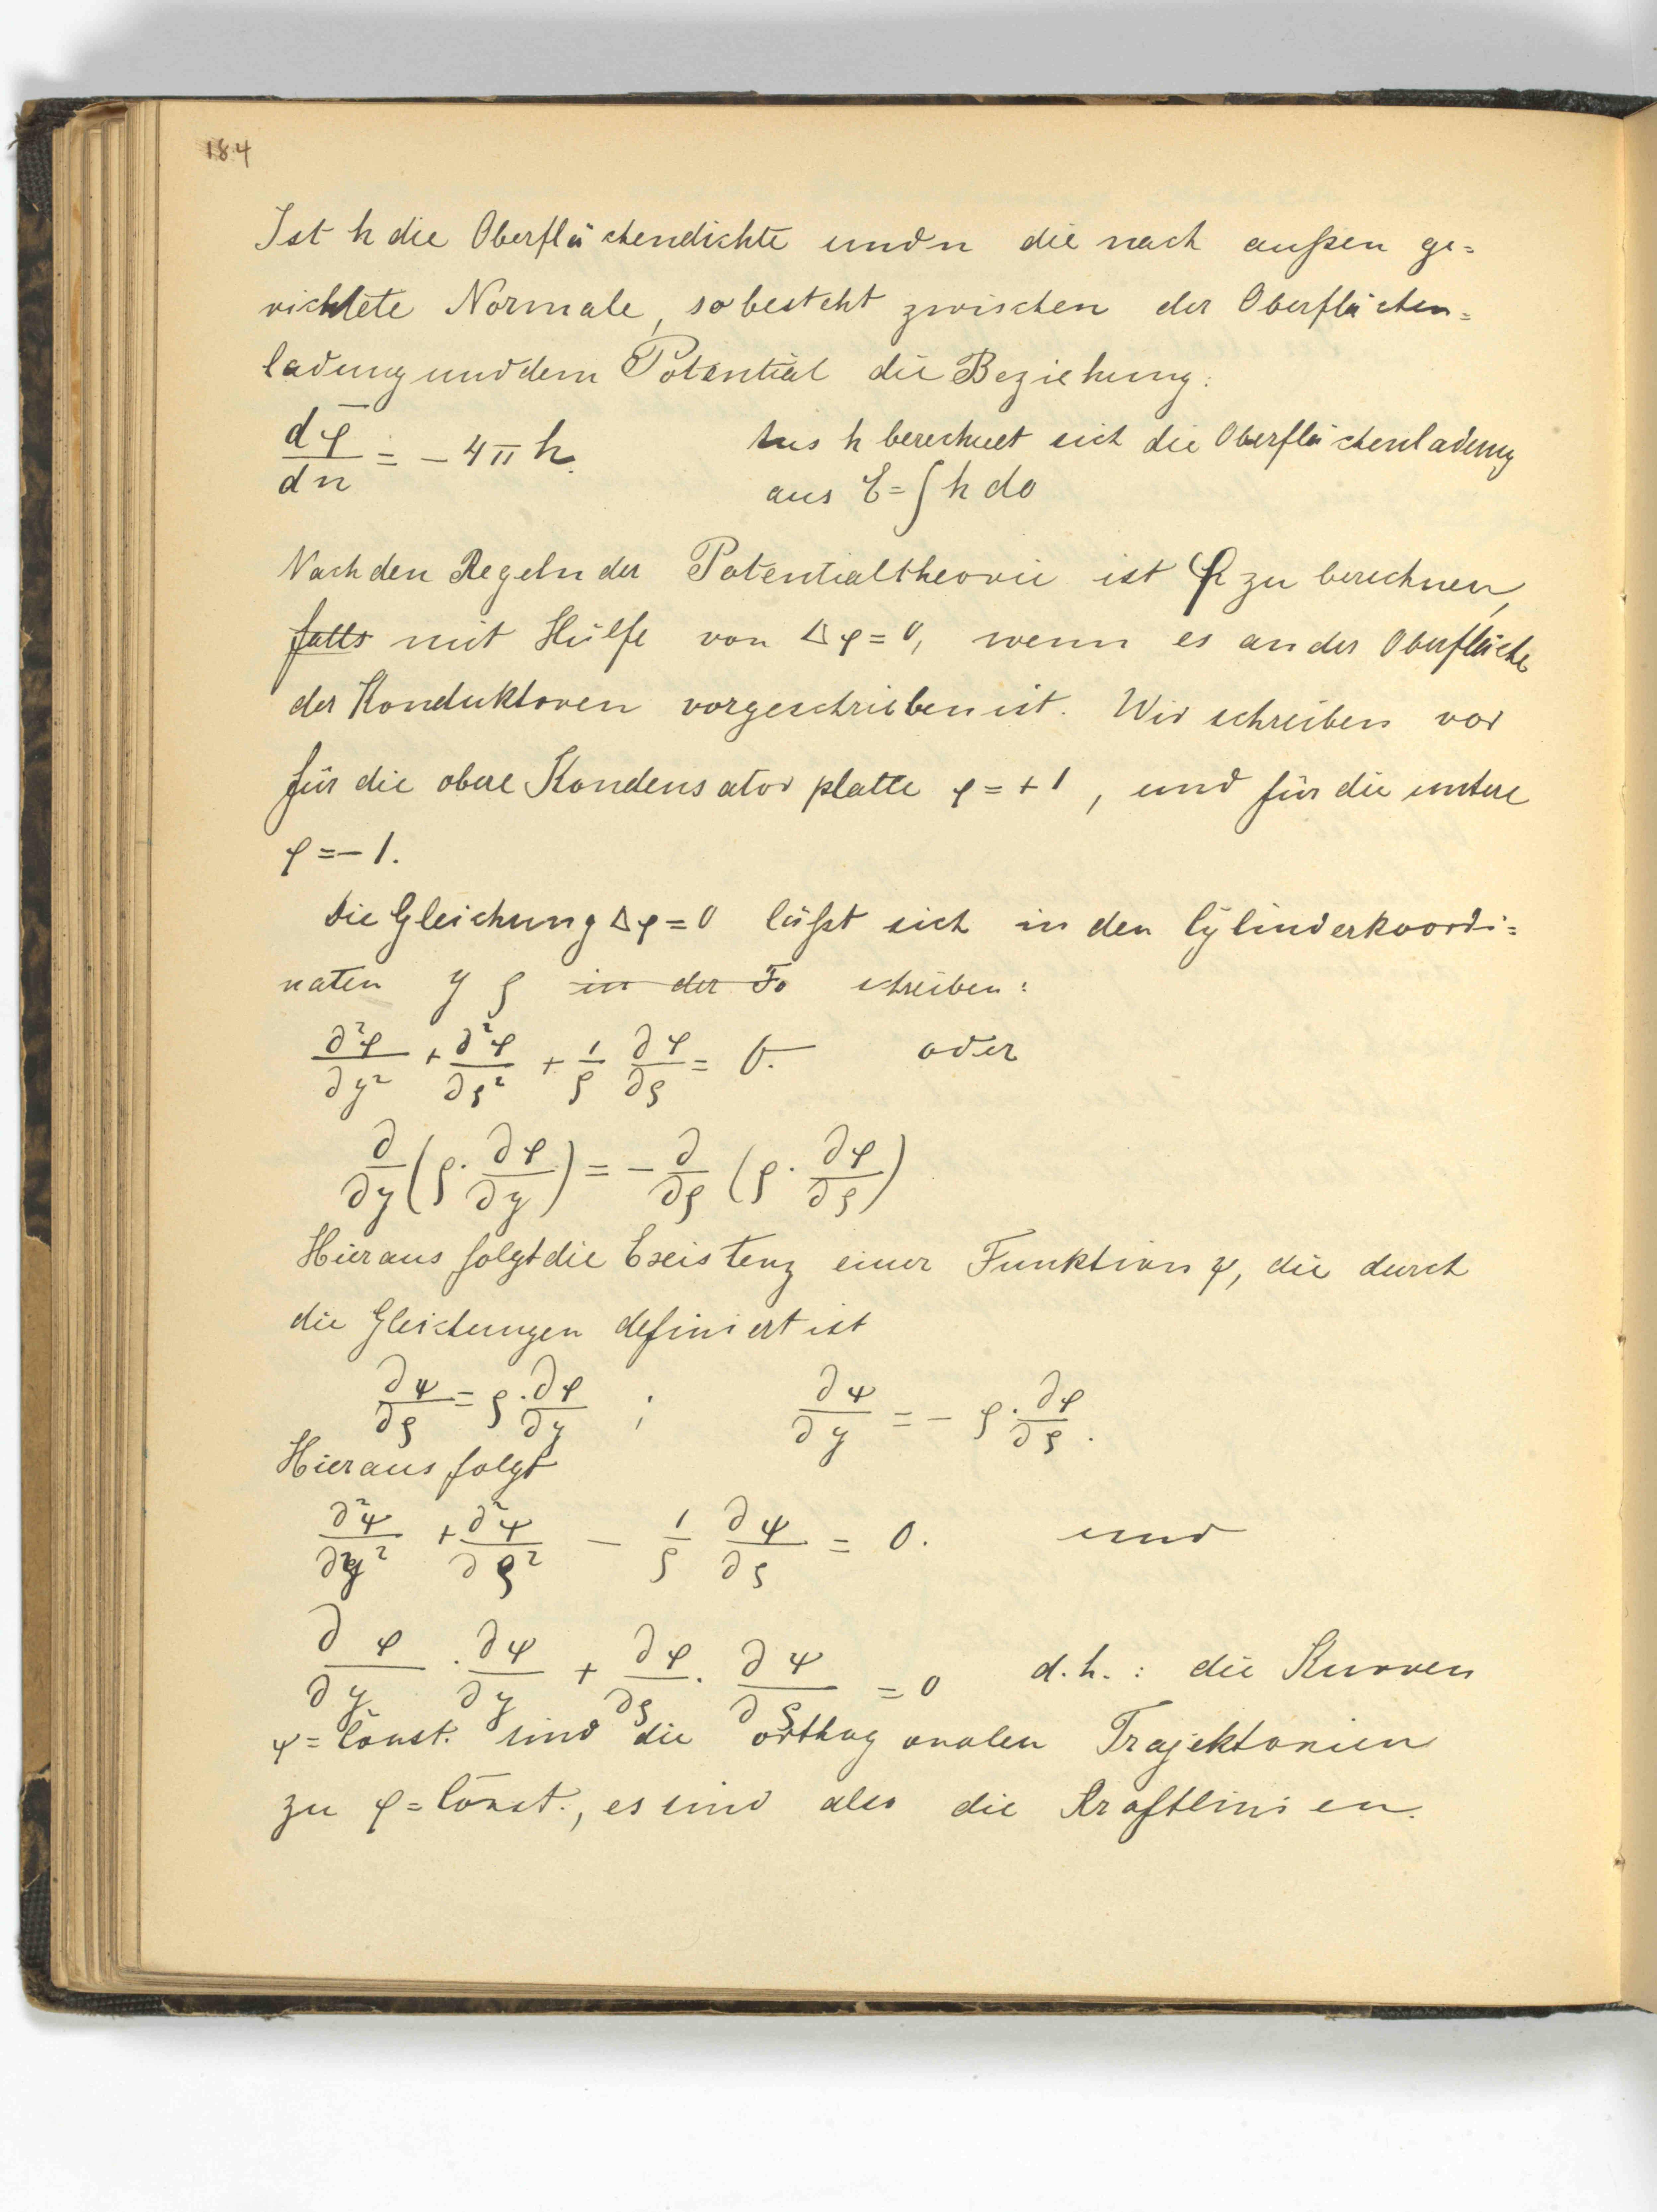 184
Ist h die Oberflächendichte und n die nach außen ge=
richtete Normale, so besteht zwischen der Oberflächen=
ladung und dem Potential die Beziehung:
dφ/dn = - 4π h. Aus h berechnet sich die Oberflächenladung
aus E = ∫ h do
Nach den Regeln der Potentialtheorie ist φ zu berechnen,
falls mit Hülfe von Δφ = 0, wenn es an der Oberfläche
der Konduktoren vorgeschrieben ist. Wir schreiben vor
für die obere Kondensatorplatte φ = + 1, und für die untere
φ = - 1.
Die Gleichung Δφ = 0 läßt sich in den Cylinderkoordi=
naten y ρ in der Fo schreiben:
∂²φ/∂y² + ∂²φ/∂ρ² + 1/ρ ∂φ/∂ρ = 0. oder
∂/∂y (ρ · ∂φ/∂y) = - ∂/∂ρ (ρ · ∂φ/∂ρ)
Hieraus folgt die Existenz einer Funktion ψ, die durch
die Gleichungen definiert ist
∂ψ/∂ρ = ρ · ∂φ/∂y ; ∂ψ/∂y = - ρ · ∂φ/∂ρ.
Hieraus folgt
∂²ψ/∂y² + ∂²ψ/∂ρ² - 1/ρ ∂ψ/∂ρ = 0. und
∂φ/∂y · ∂ψ/∂y + ∂φ/∂ρ · ∂ψ/∂ρ = 0 d.h.: die Kurven
ψ = Const. sind die orthogonalen Trajektorien
zu φ = Const., es sind also die Kraftlinien.